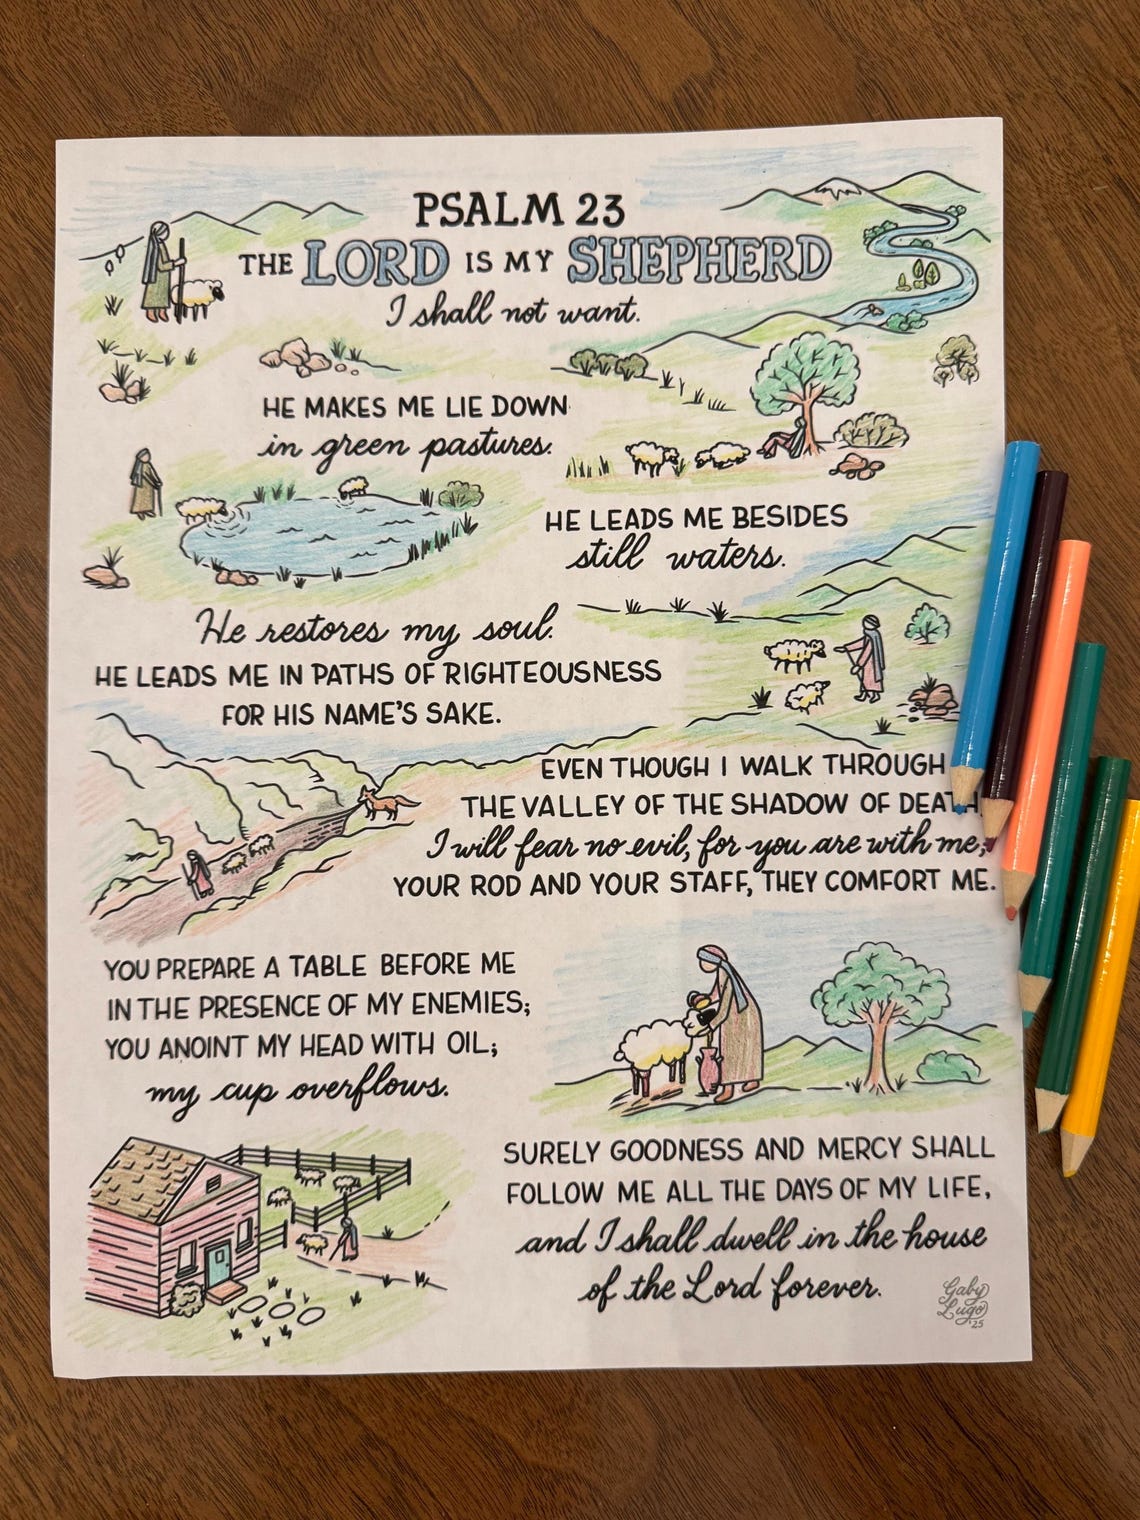 PSALM 23
THE LORD IS MY SHEPHERD
I shall not want.
HE MAKES ME LIE DOWN
in green pastures.
HE LEADS ME BESIDES
still waters.
He restores my soul.
HE LEADS ME IN PATHS OF RIGHTEOUSNESS
FOR HIS NAME'S SAKE.
EVEN THOUGH I WALK THROUGH
THE VALLEY OF THE SHADOW OF DEATH,
I will fear no evil, for you are with me;
YOUR ROD AND YOUR STAFF, THEY COMFORT ME.
YOU PREPARE A TABLE BEFORE ME
IN THE PRESENCE OF MY ENEMIES;
YOU ANOINT MY HEAD WITH OIL;
my cup overflows.
SURELY GOODNESS AND MERCY SHALL
FOLLOW ME ALL THE DAYS OF MY LIFE,
and I shall dwell in the house
of the Lord forever.
Gaby
Lugo
'25